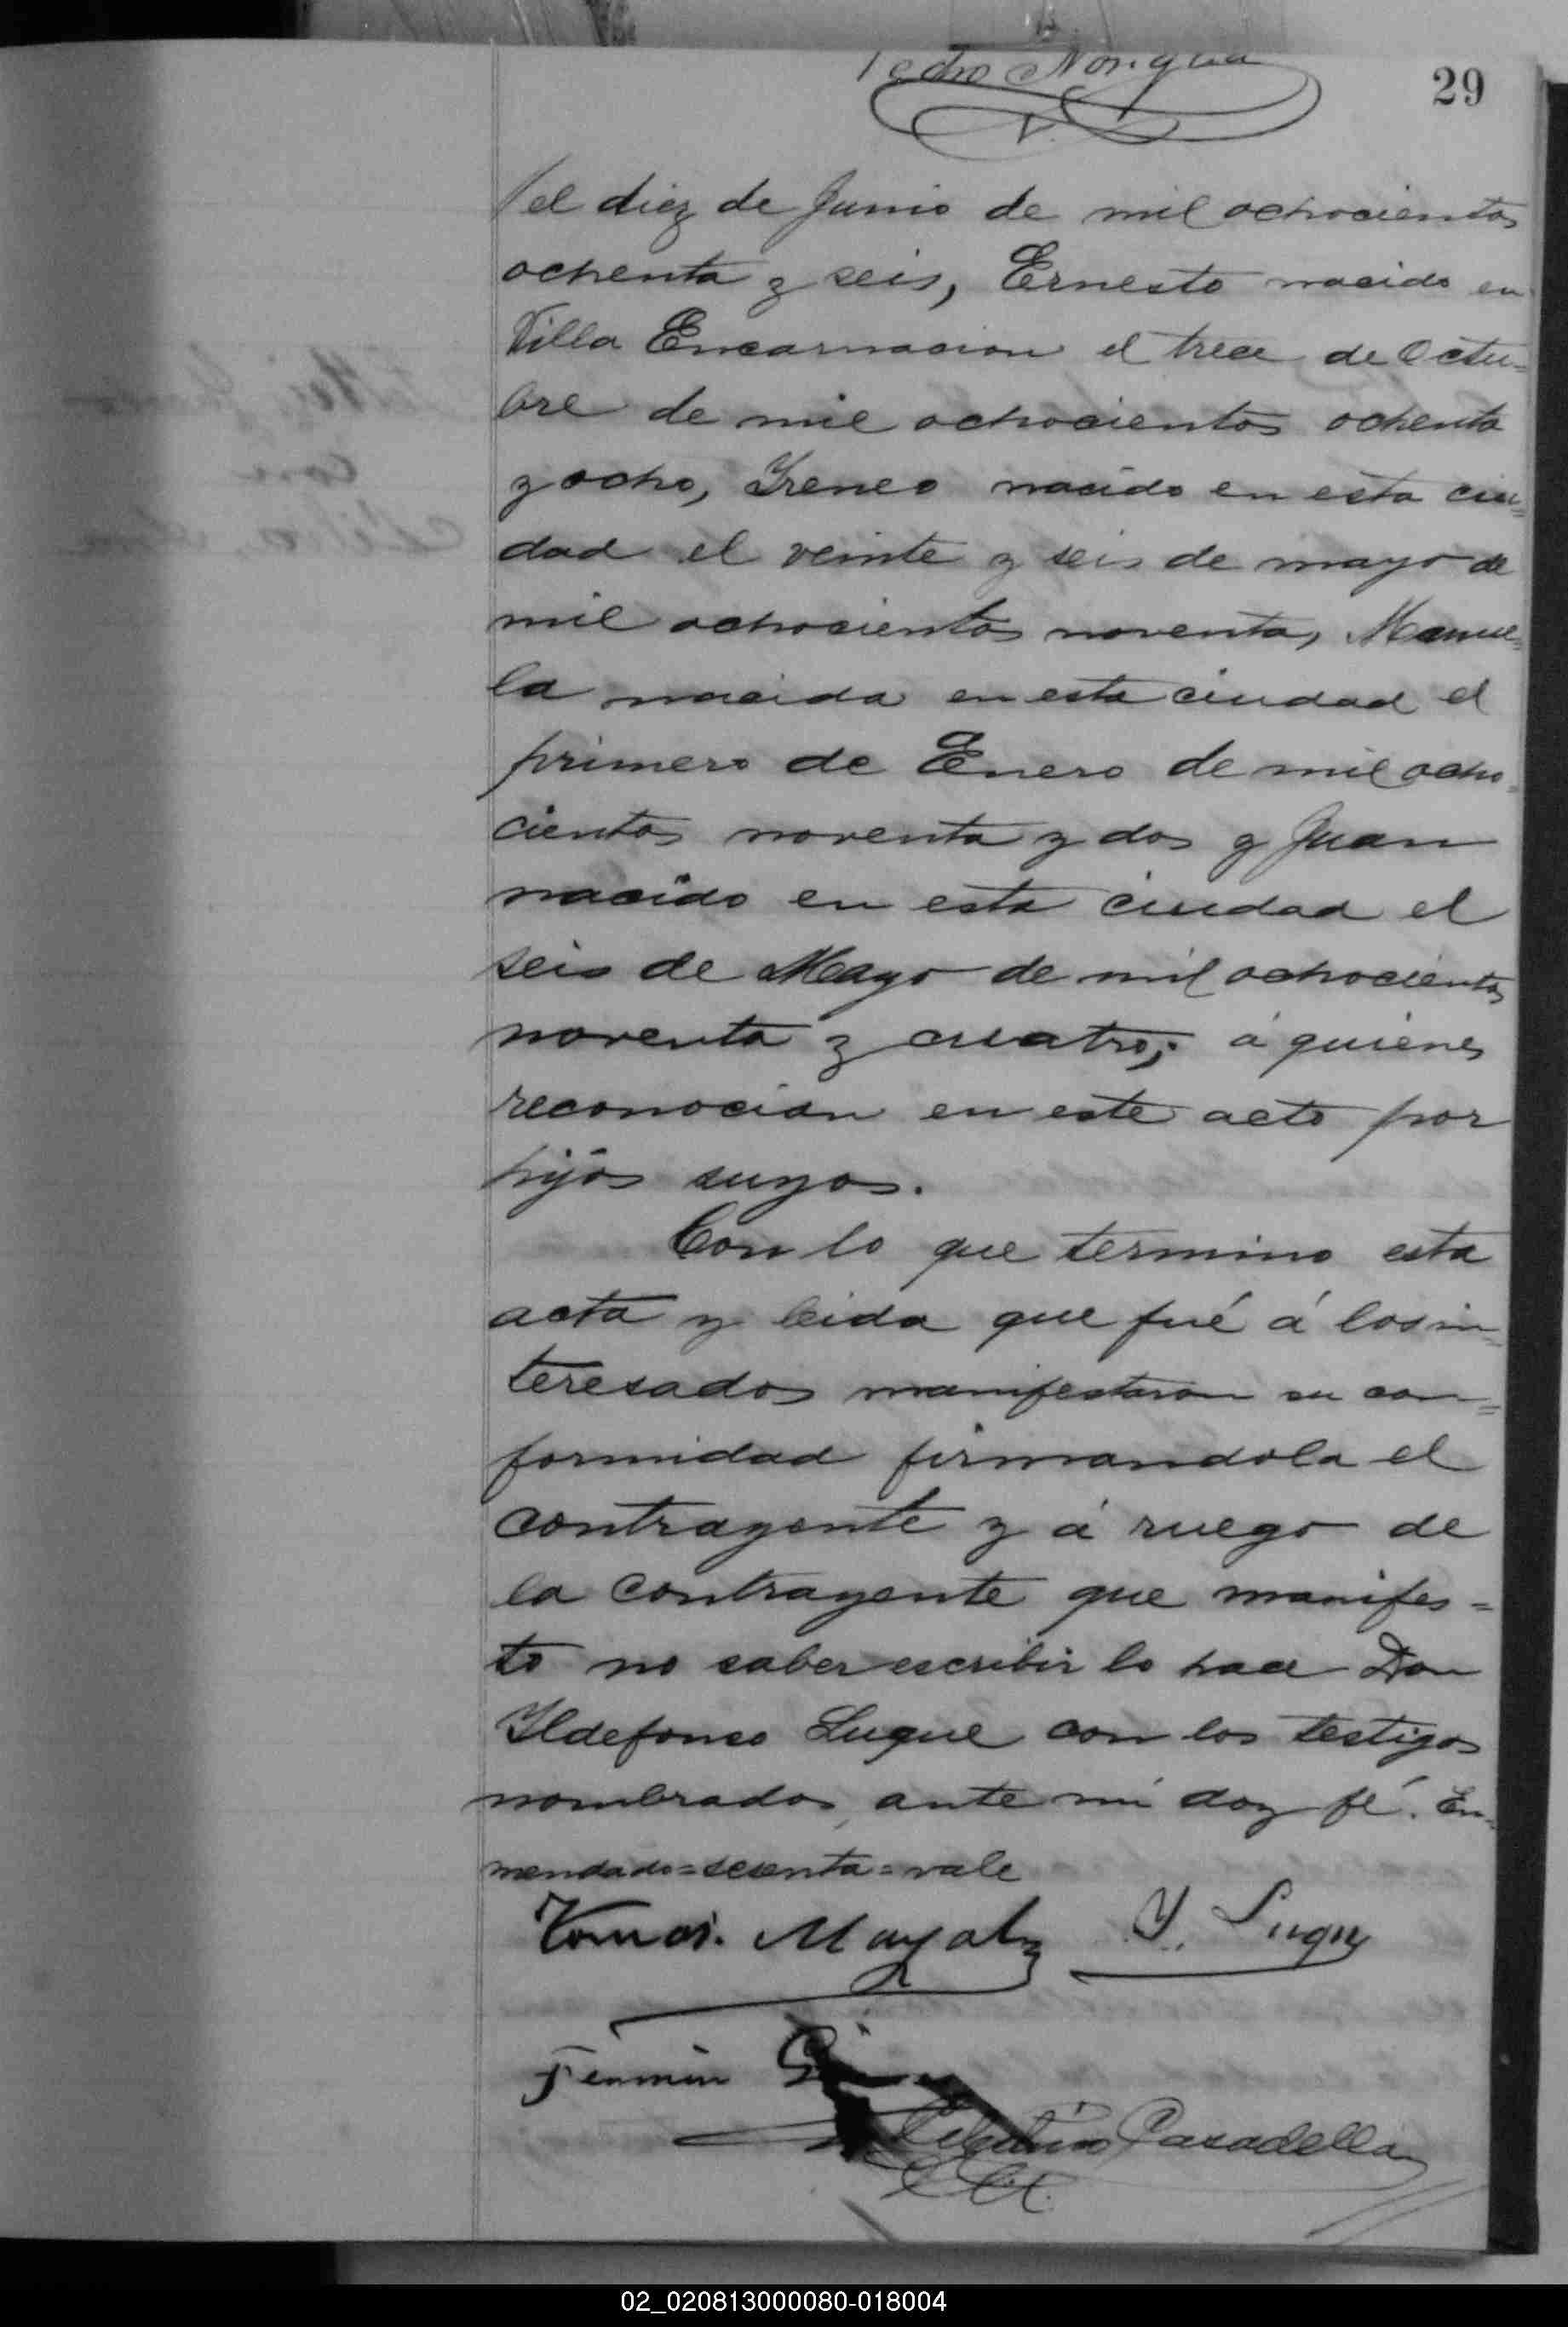 Pedro
29
el diez de Junio de mil ochocientos
ochenta y seis, Ernesto nacido en
Villa Encarnacion el trece de Octu=
bre de mil ochocientos ochenta
y ocho, Yreneo nacido en esta ciu=
dad el veinte y seis de mayo de
mil ochocientos noventa, Manue=
la nacida en esta ciudad el
primero de Enero de mil ocho=
cientos noventa y dos y Juan
nacido en esta ciudad el
seis de Mayo de mil ochocientos
noventa y cuatro; á quienes
reconocian en este acto por
hijos suyos.
Con lo que termino esta
acta y leida que fué á los in=
teresados manifestaron su con=
formidad firmandola el
contrayente y á ruego de
la contrayente que manifes=
to no saber escribir lo hace Don
Yldefonso Luque con los testigos
nombrados, ante mi doy fé. En=
mendado=sesenta=vale
Tomas. Y. Luque
Fermin
Casadella
02_020813000080-018004